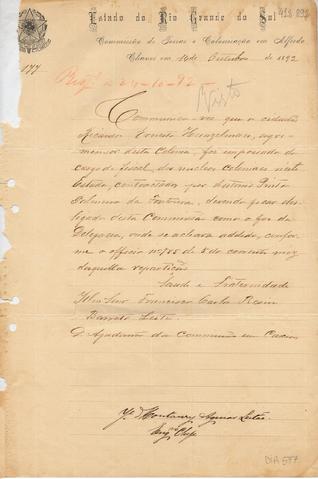 Estado do Rio Grande do Sul
Commissão de Terras e Colonisação em Alfredo
Chaves em 10 de Outubro de 1892
Nº 177
Regdo a 24-10-92
Visto
Communico-vos que o cidadão
Ricardo Ernesto Heinzelmann, agri-
mensor desta Colonia, foi empossado do
cargo de fiscal dos nucleos coloniaes neste
Estado, contractados por Antonio Pinto
da Fontoura, devendo ficar des-
ligado desta Commissão como o foi da
Delegacia, onde se achava addido, confor-
me o officio nº 755 de 5 do corrente mez
daquella repartição.
Saude e Fraternidade
Illmo Snr Francisco Carlos
Barreto Leite
D. Ajudante da Commissão em Caxias
J. Montaury Aguiar Leitão
Engro Chefe
DIA 577